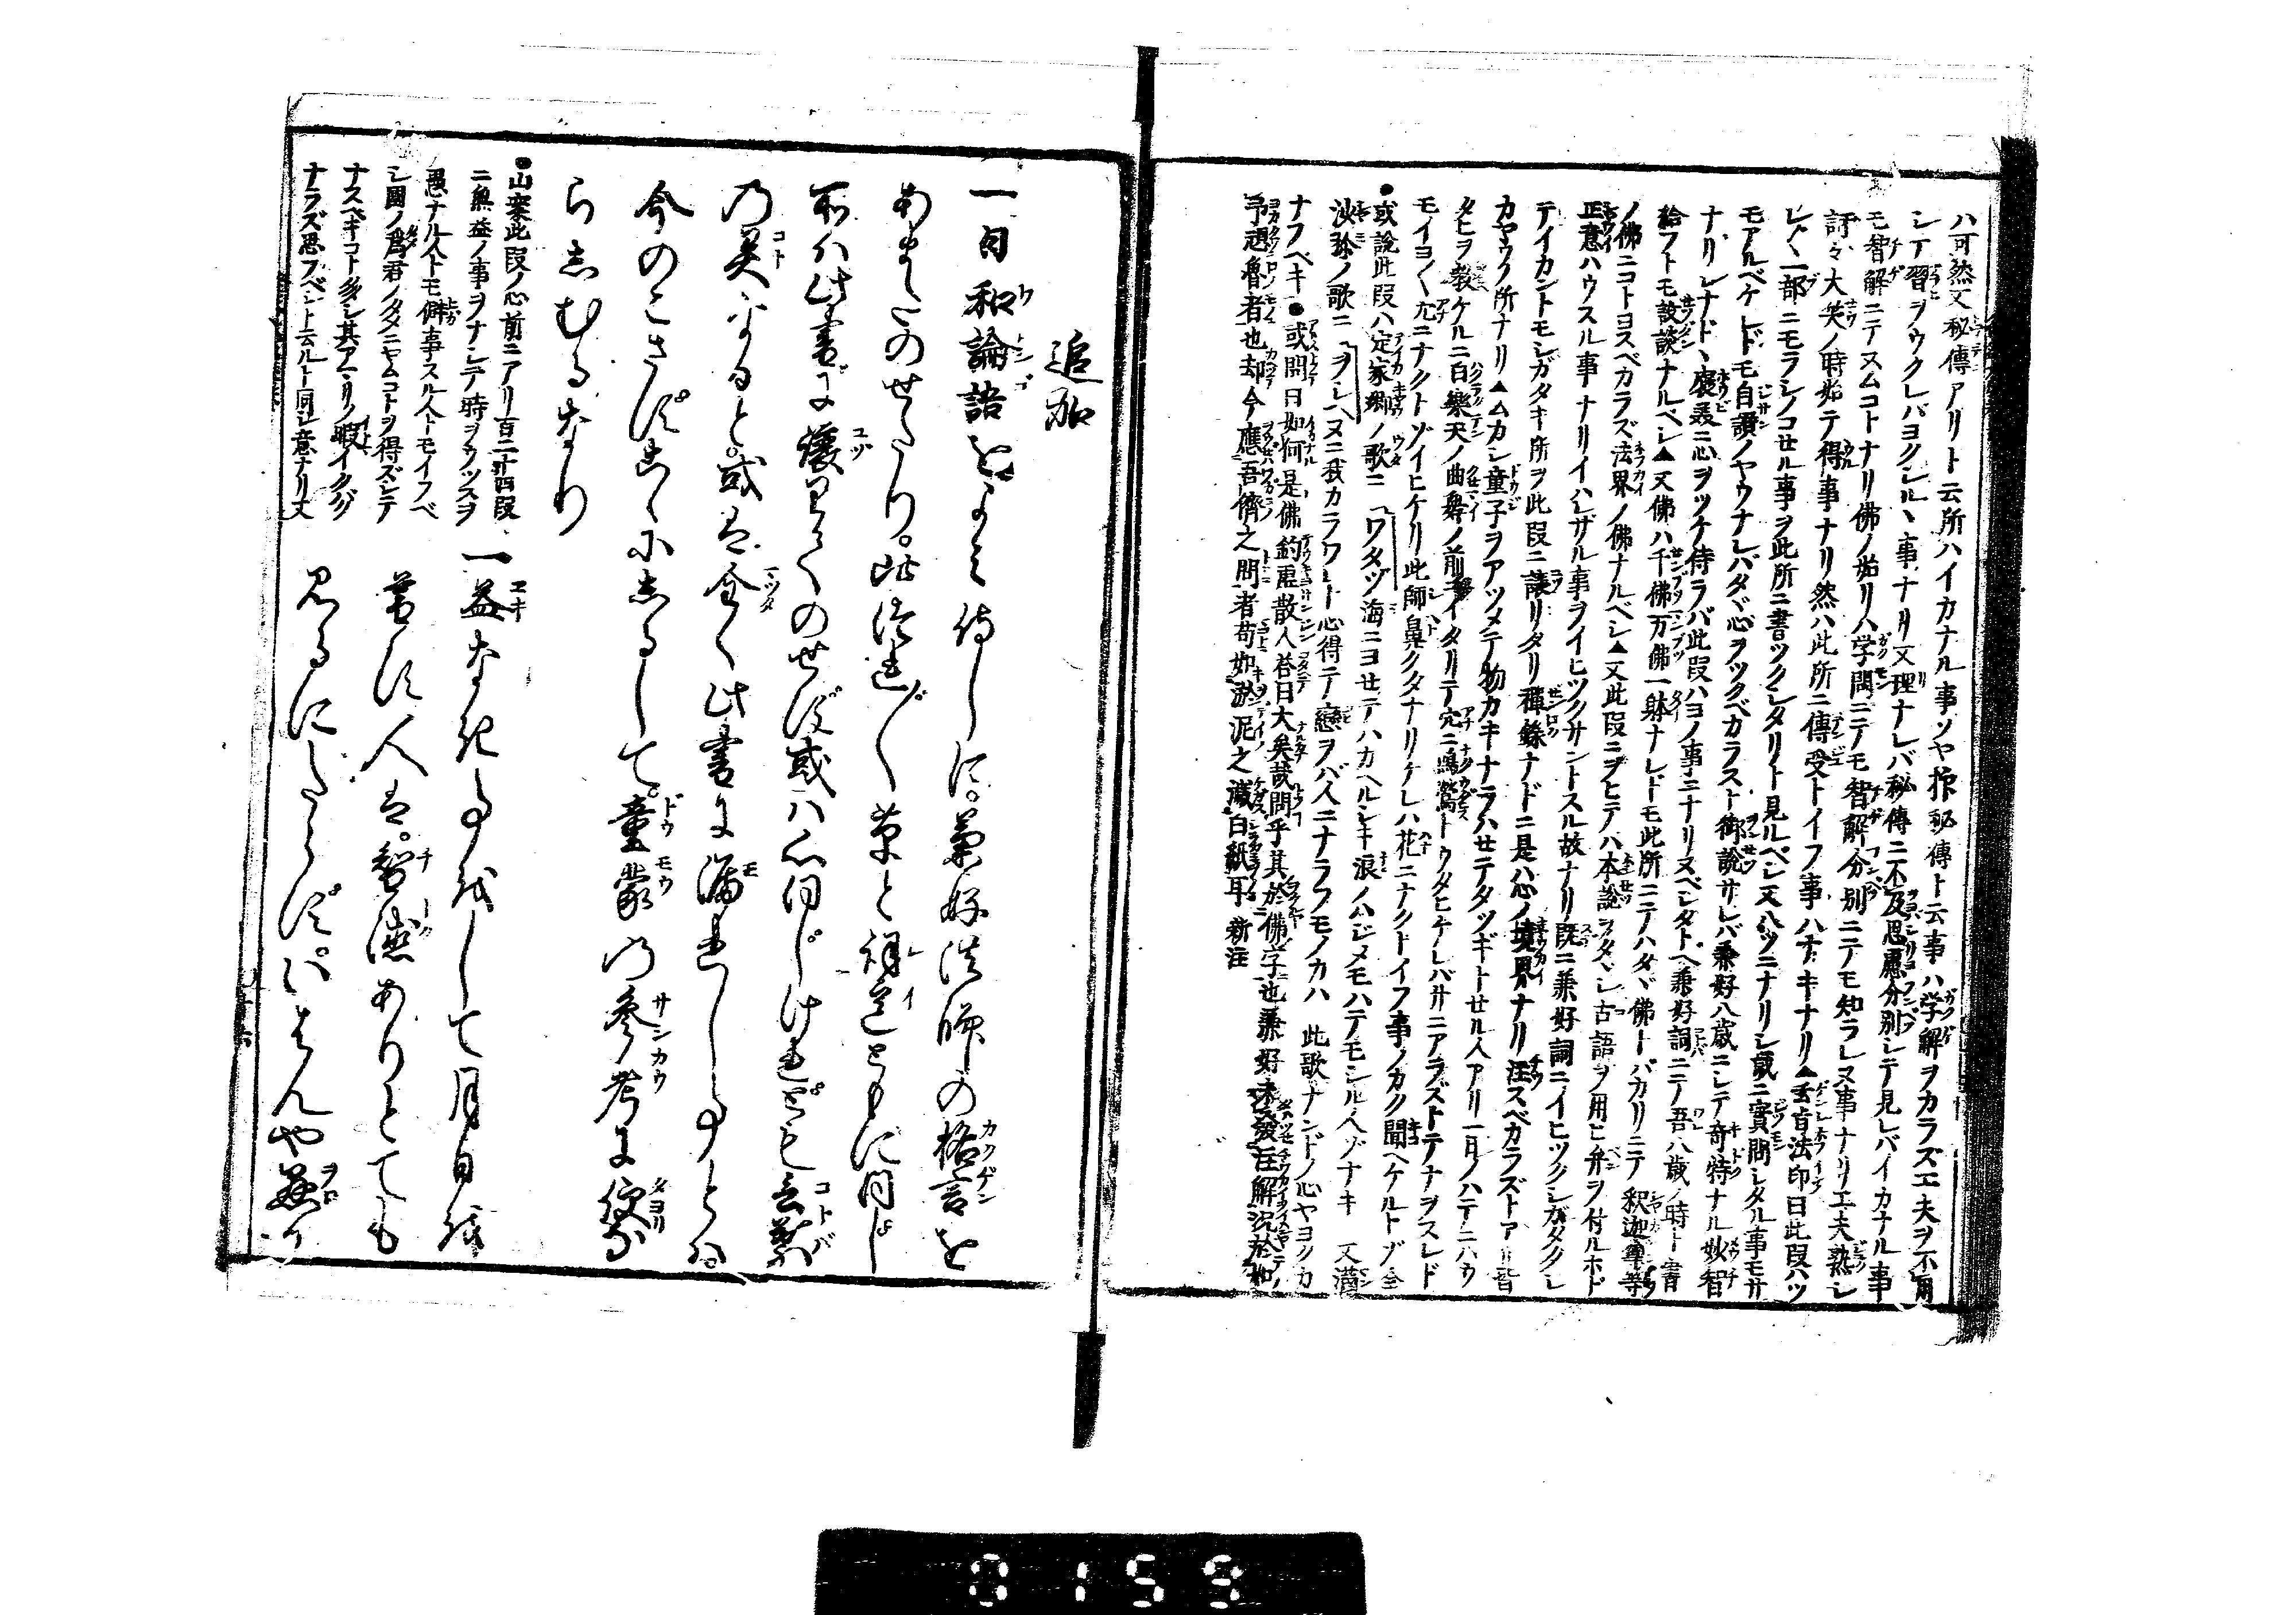 ハ可然又秘傳アリト云所ハイカナル事ソヤ抑秘傳ト云事ハ学解ヲカラズ工夫ヲ不用
シテ習ヲウクレバヨクシルヽ事ナリ又理ナレバ秘傳ニ不及思慮分別シテ見レバイカナル事
モ智解ニテスムコトナリ佛ノ始リハ学問ニテモ智解分別ニテモ知ラレヌ事ナリ工夫熟シ
訝々大笑ノ時始テ得事ナリ然ハ此所ニ傳受トイフ事ハナキナリ▲玄旨法印曰此段ハツ
レ〱一部ニモラシノコセル事ヲ此所ニ書ツクシタリト見ルベシ又八ツニナリシ歳ニ實問シタル事モサ
モアルベケレドモ自讃ノヤウナレバタヾ心ヲツクベカラスト御説サレバ兼好八歳ニシテ奇特ナル妙智
ナリシナドヽ褒美ニ心ヲツケ侍ラバ此段ハヨノ事ニナリヌベシタトヘ兼好詞ニテ吾八歳ノ時ト書
給フトモ設談ナルベシ▲又佛ハ千佛万佛一躰ナレドモ此所ニテハタヾ佛トバカリニテ釈迦軍等
ノ佛ニコトヨスベカラズ法界ノ佛ナルベシ▲又此段ニヲヒテハ本説ヲタヾシ古語ヲ用ヒ弁ヲ付ルホド
正意ハウスル事ナリイハレザル事ヲイヒツクサントスル故ナリ既ニ兼好詞ニイヒツクシガタクシ
テイカントモシガタキ所ヲ此段ニ譲リタリ禅録ナドニ是ハ心ノ境界ナリ注スベカラズトアリ皆
カヤウノ所ナリ▲ムカシ童子ヲアツメテ物カキナラハセテタツギトセル人アリ一月ノハテニハウ
タヒヲ教ケルニ白樂天ノ曲舞ノ前ニイタリテ穴ニ鳴鶯トウタヒケレバサニアラズトテナヲスレド
モイヨ〱穴ニナクトゾイヒケリ此師鼻クタナリケレハ花ニナクトイフ事ノカク聞ヘケルトゾ全
●或説此段ハ定家卿ノ歌ニ ワタヅ海ニヨセテハカヘルシキ浪ノハジメモハテモシル人ゾナキ 又満
沙弥ノ歌ニ ヲシヘヌニ我カラワレト心得テ戀ヲバ人ニナラフモノカハ 此歌ナンドノ心ヤヨクカ
ナフベキ ●或問曰如何是佛釣雪散人答曰大矣哉問乎其於佛学也兼好未及注解況於和
予廻魯者也却今應吾儕之問者苟如淤泥之濺白紙耳 新注
追加
一日和論語をよみ侍しに。兼好法師の格言を
あまたのせたり。此徒然〱草と祥意ともに同じ
所ハ此書に讓りてのせず或ハ心同じけれども言葉
乃異なると。或は全く此書に漏れし事とは。
今のこさず書くしるして。童蒙の參考に便な
らしむるなり
●山案此段ノ心前ニアリ百二十四段
ニ無益ノ事ヲナシテ時ヲウツスヲ
愚ナル人トモ僻事スル人トモイフベ
シ國ノ爲君ノタメニヤムコトヲ得ズシテ
ナスベキコトオホシ其アマリノ暇イクバク
ナラズ思フベシト云ルト同シ意ナリ又
一益なき事をして月日を
暮す人は。智徳ありとても
見るにたらず。いはんや愚か